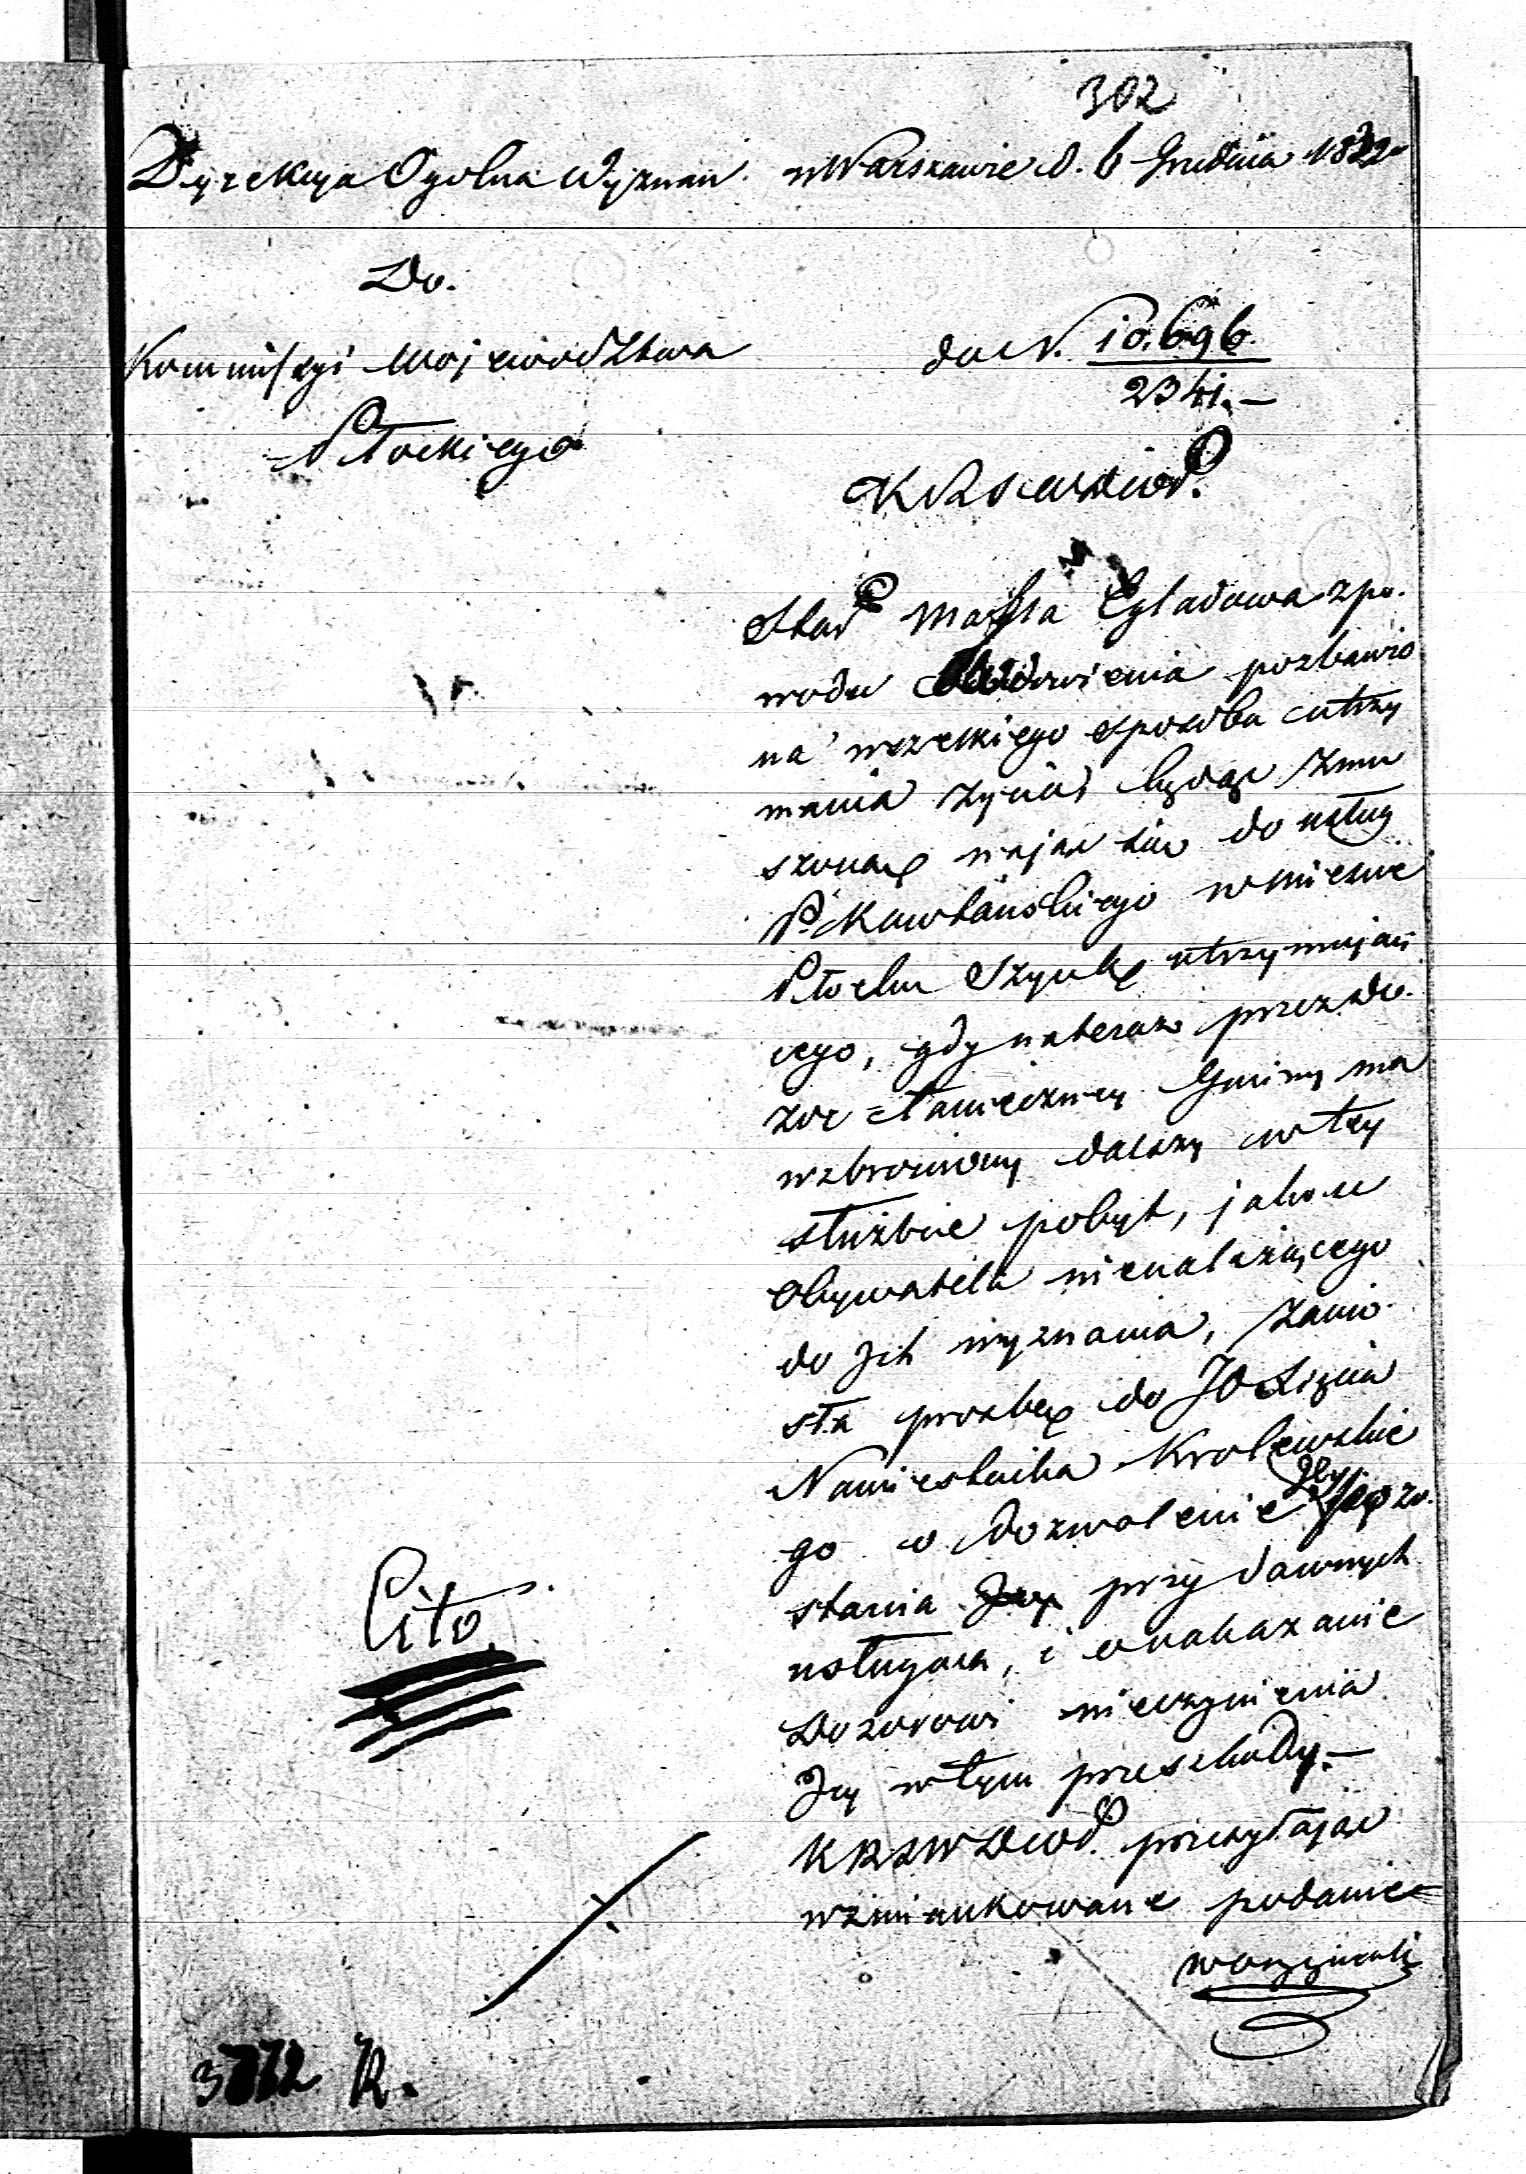 302
Dyrekcya Ogolna Wyznań. w Warszawie d. 6 Grudnia 1822
Do.
Kommissyi Województwa
Płockiego
do N. 10.696.
2341.
KRSWDiOP.
Star Ma Egladowa z po.
wodu owdowienia pozbawio
na wszelkiego sposobu utrzy
mania życia, będąc zmu
szoną najac się do usług
P. Kawłańskiego w mieście
Płocku Szynk utrzymują
cego, gdy nateraz przez do.
zor tamecznej Gminy ma
wzbroniony dalszy w tey
służbie pobyt, jako u
Obywatela nienależącego
do Jch wyznania, zanio
sła prozbę do JO Xięcia
Namiestnika Krolewskie
go o dozwolenie Jey zo.
stania przy dawnych
usługach, i o nakazanie
Dozorowi nieczynienia
Jey w tym przeszkody.
KRSWDiOP. przesyłając
wzmiankowane podanie
w oryginale
Cito.
R.